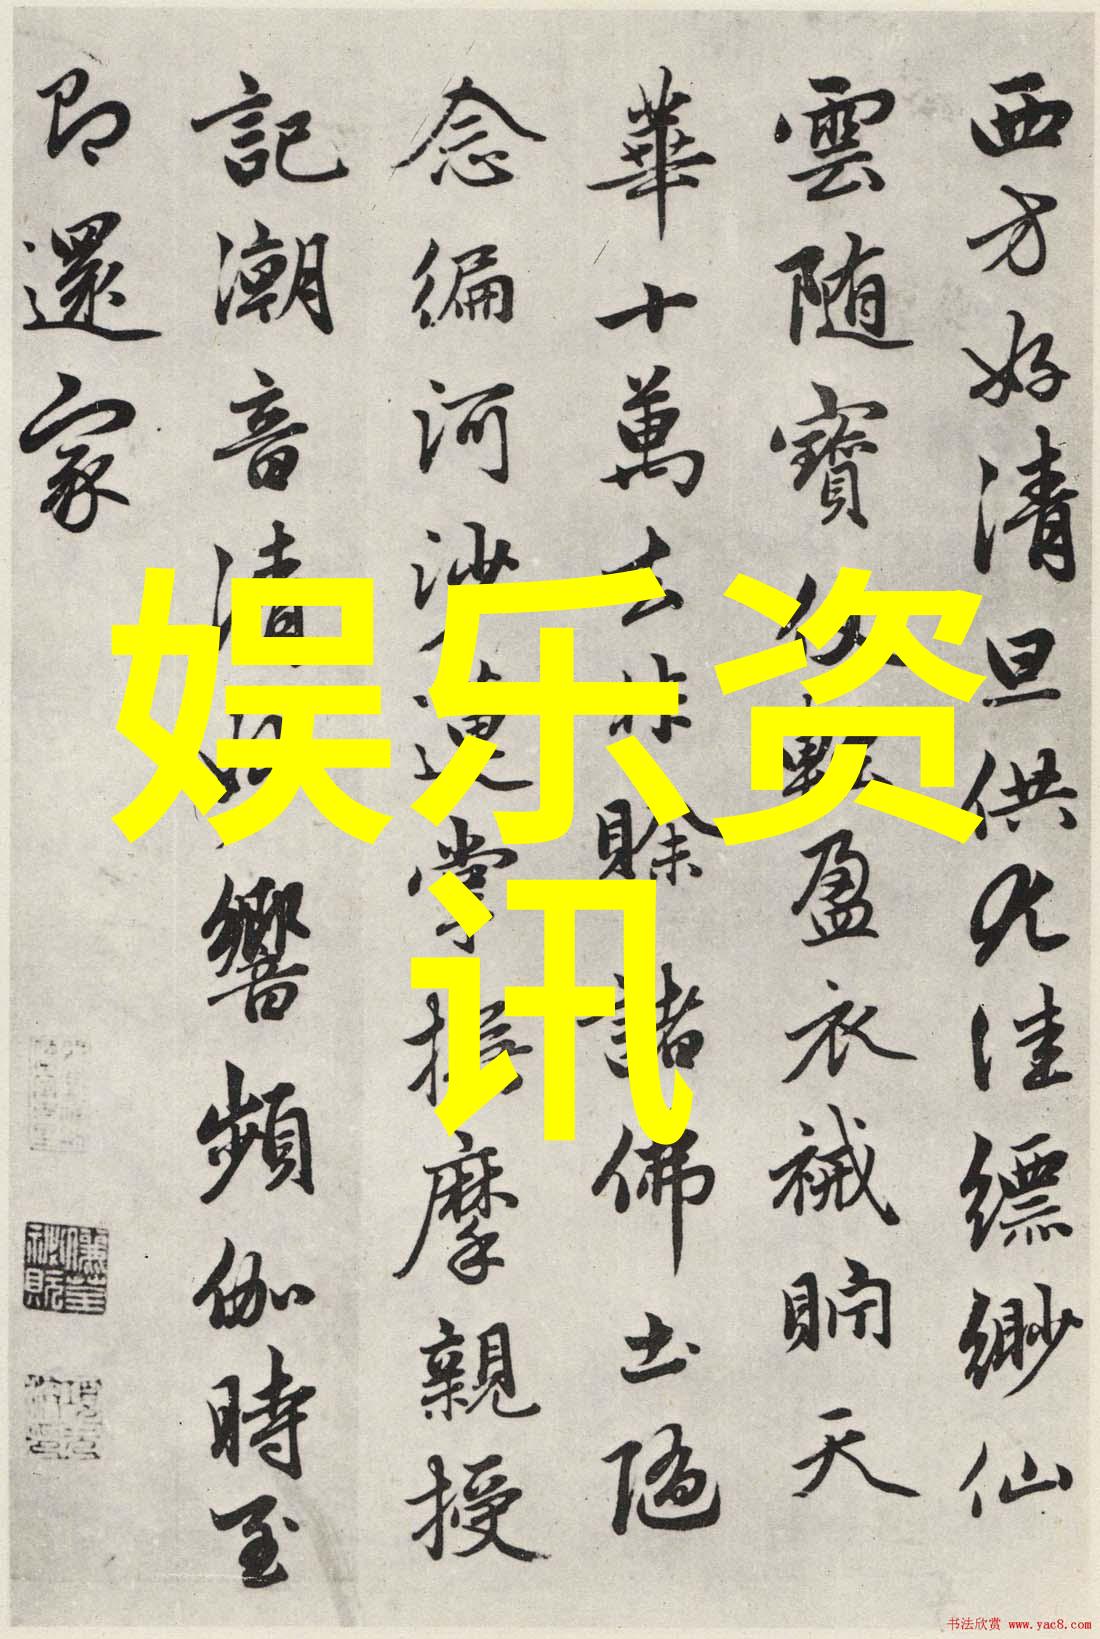 西方好清旦供尤佳縹緲仙
雲隨寶仗輕盈衣裓貯天
華十萬去非賒諸佛土隨
念徧河沙蓮掌撫摩親授
記潮音清響頻伽時至
即還家
娱乐资
讯
书法欣赏 www.yac8.com